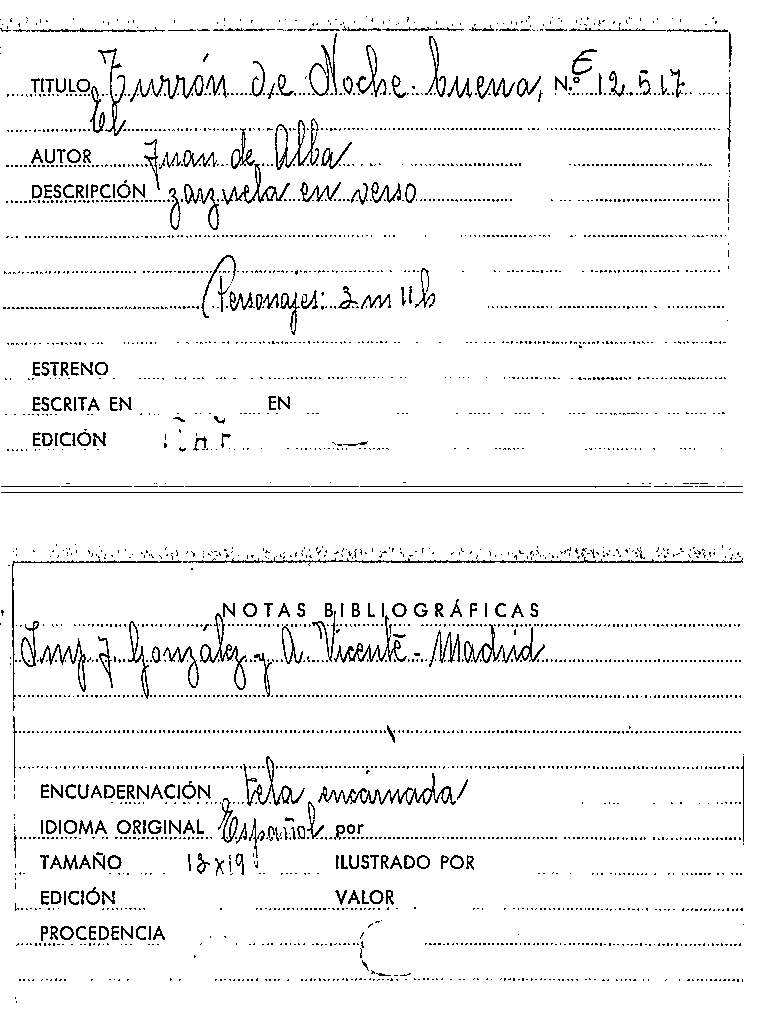 TITULO Turrón de Noche-buena, N.º E 12.517
El
AUTOR Juan de Alba
DESCRIPCIÓN zarzuela en verso
Personajes: 3 m 11 h
ESTRENO
ESCRITA EN EN
EDICIÓN
NOTAS BIBLIOGRÁFICAS
Imp J. González y A. Vicente - Madrid
ENCUADERNACIÓN tela encarnada
IDIOMA ORIGINAL Español por
TAMAÑO 13x19 ILUSTRADO POR
EDICIÓN VALOR
PROCEDENCIA